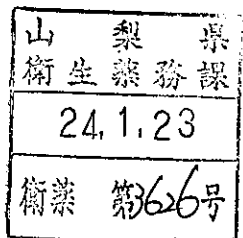 山梨県
衛生薬務課
24.1.23
衛薬 第3626号